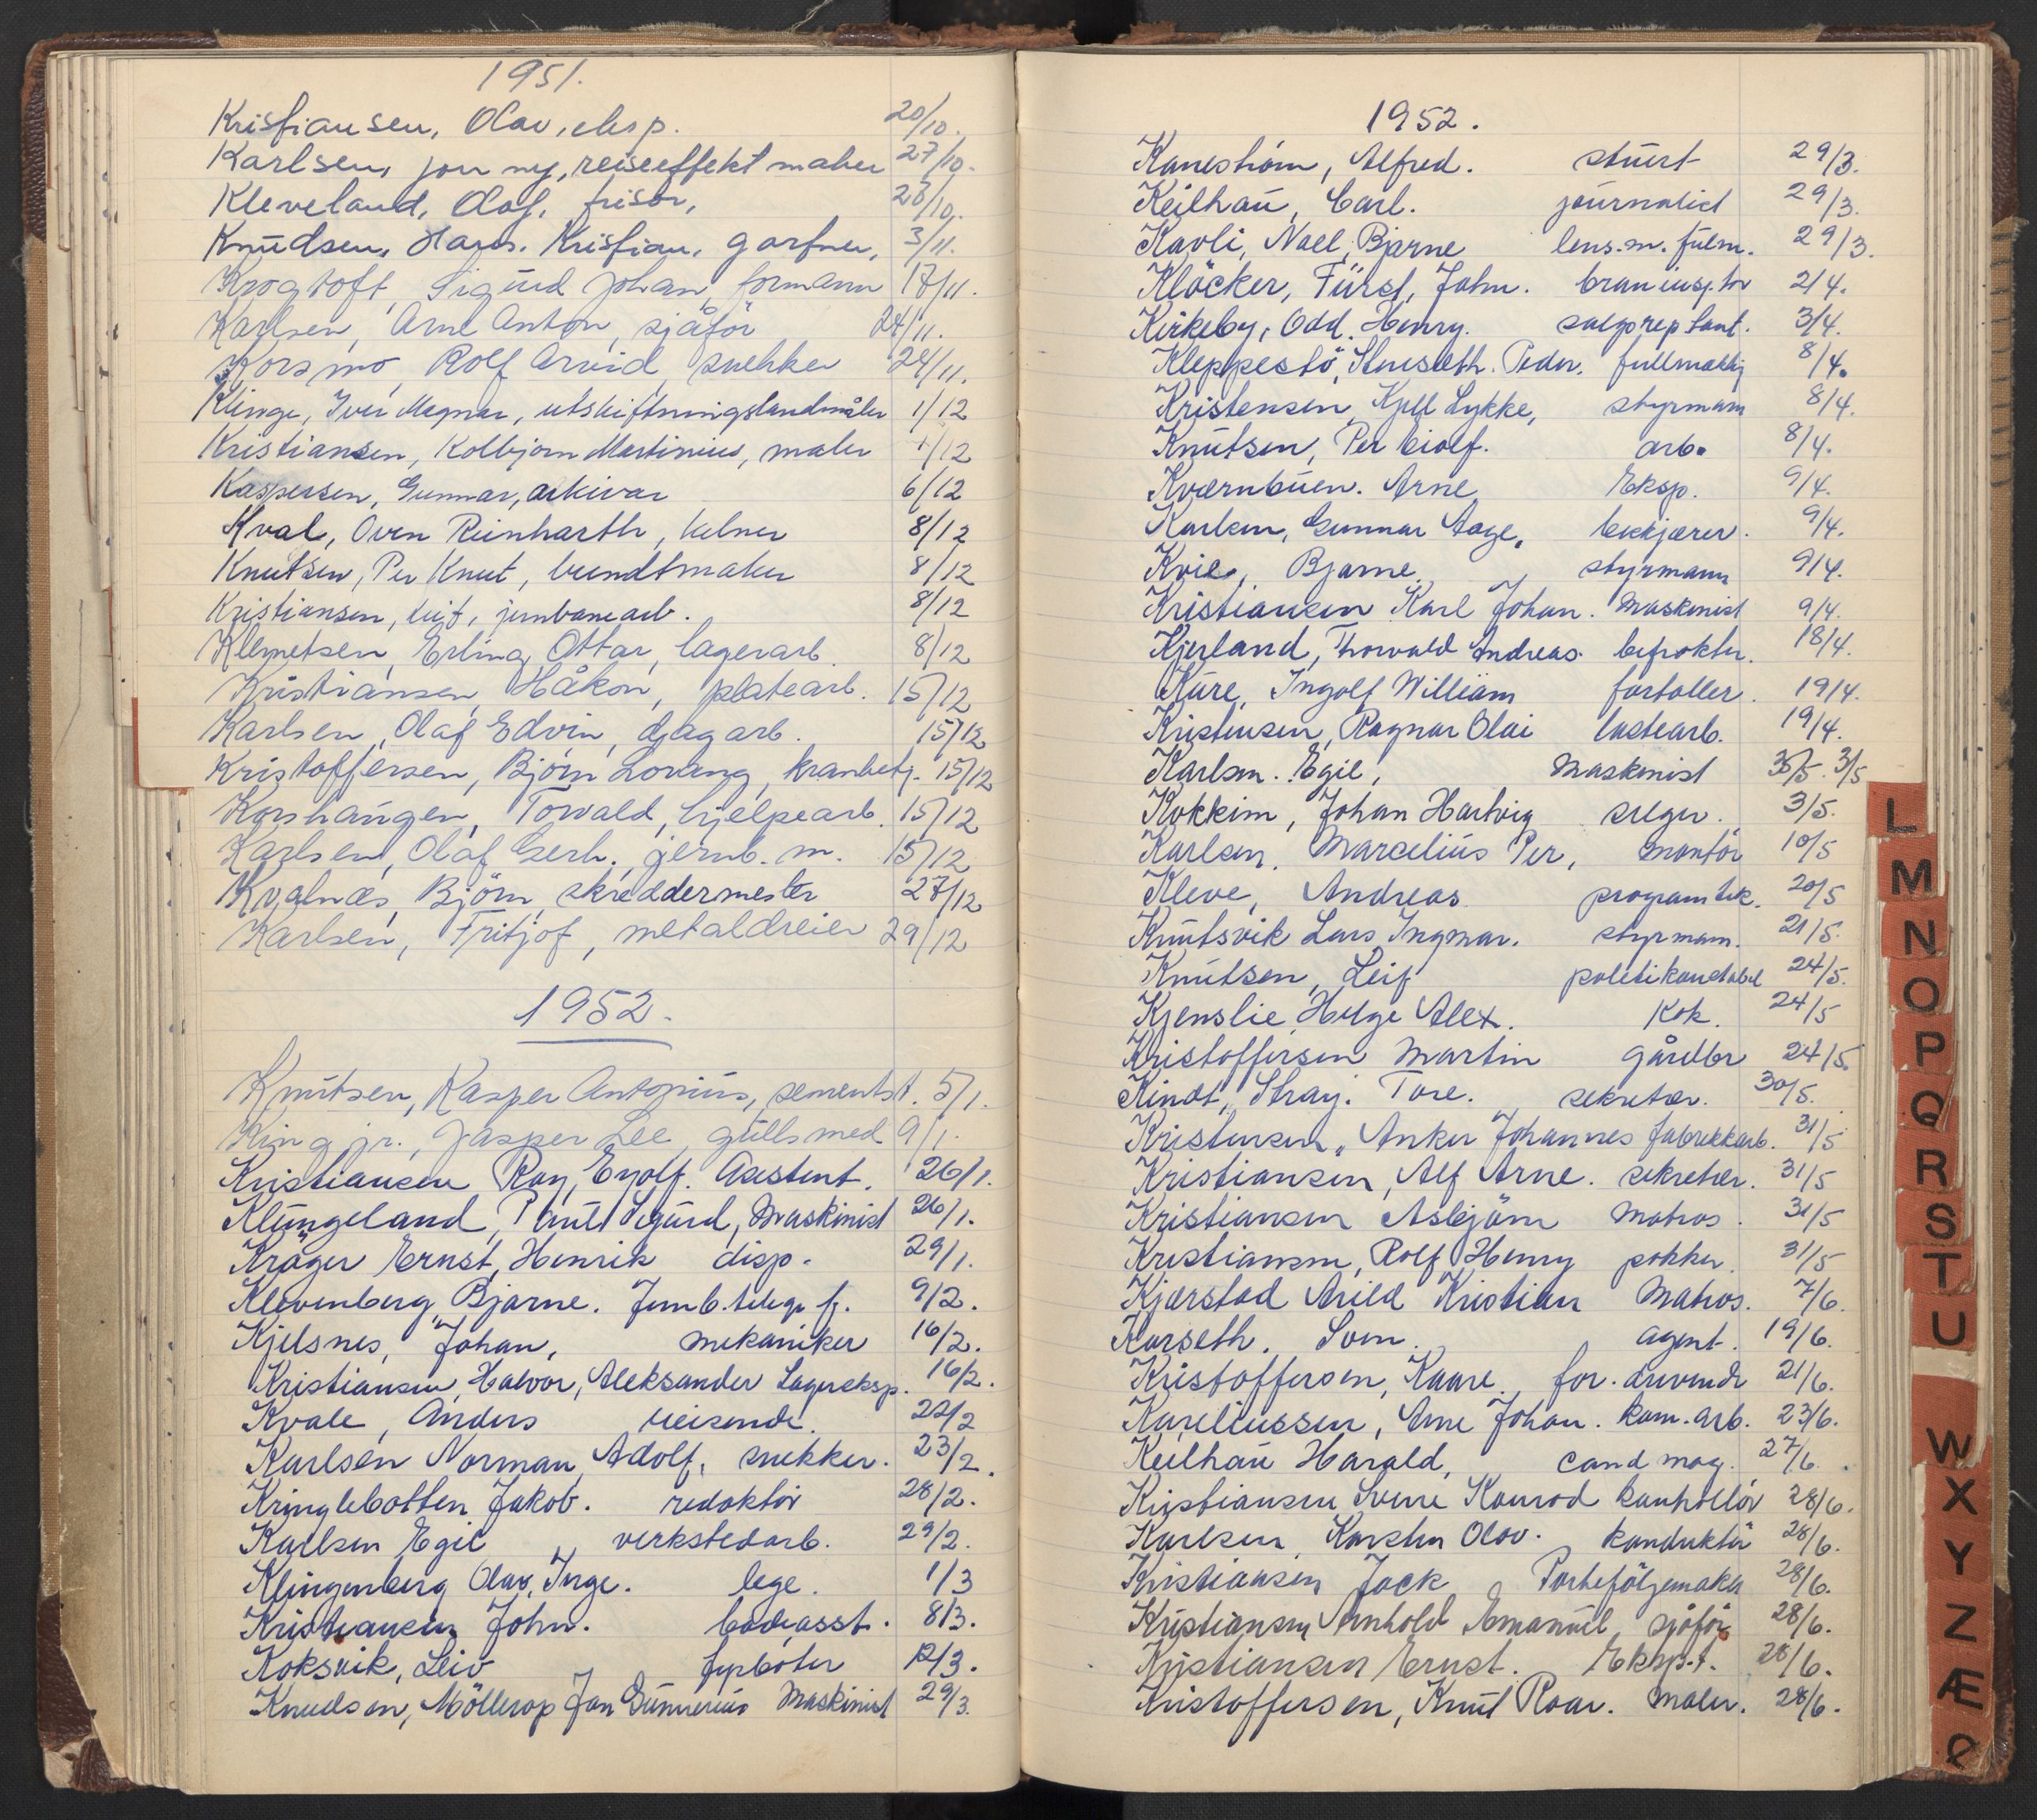 1951.
Kristiansen, Olav, eksp. 20/10.
Karlsen, jon ny, reiseeffekt maker 27/10.
Kleveland, Olaf, frisör, 28/10.
Knudsen, Hans. Kristian, gartner, 3/11.
Krogtoft, Sigurd Johan, formann 17/11.
Karlsen, Arne Anton, sjåför 24/11.
Korsmo, Rolf Arvid, snekker 24/11.
Klinge, Iver Magnar, utskiftningslandmåler 1/12
Kristiansen, Kolbjørn Martinius, maler 1/12
Kaspersen, Gunnar, arkivar 6/12
Kval, Oven Reinharth, kelner 8/12
Knutsen, Per Knut, bundtmaker 8/12
Kristiansen, Leif, jernbanearb. 8/12
Klemetsen, Erling Ottar, lagerarb. 8/12
Kristiansen, Håkon, platearb. 15/12
Karlsen, Olaf Edvin, djagarb. 15/12
Kristoffersen, Bjørn Loreng, kranbetj. 15/12
Korshaugen, Torvald, hjelpearb. 15/12
Karlsen, Olaf Gerh. jernb. m. 15/12
Kvalnæs, Björn, skreddermester 27/12
Karlsen, Fritjof, metaldreier 29/12
1952.
Knutsen, Kasper Antonius, sementst. 5/1.
King jr., Jasper Lee, gullsmed 9/1.
Kristiansen Roy, Eyolf. Assistent. 26/1.
Klungeland, Paul Sigurd, Maskinist 26/1.
Kröger Ernst, Henrik disp. 29/1.
Klevenberg, Bjarne. Jernb. telegr. fj. 9/2.
Kjelsnes, Johan, mekaniker 16/2.
Kristiansen, Halvor, Aleksander Lagereksp. 16/2.
Kvale, Anders reisende. 22/2
Karlsen Norman, Adolf, snekker. 23/2.
Kringlebotten, Jakob. redaktör 28/2.
Karlsen Egil, verkstedarb. 29/2.
Klingenberg Olav, Inge. lege. 1/3
Kristiansen, John. badeasst. 8/3.
Koksvik, Leiv fyrböter 12/3.
Knudsen, Möllerop Jan Gunnerius Maskinist 29/3.
1952.
Kaneström, Alfred. stuert 29/3.
Keilhau, Carl. journalist 29/3.
Kavli, Nael, Bjarne lens.m. fulm. 29/3.
Klöcker, Fürst, John. branninsp.tör 2/4.
Kirkeby, Odd. Henry. salgsreptant. 3/4.
Kleppestö, Stenseth. Peder. fullmektig 8/4.
Kristensen, Kjell Lykke, styrmann 8/4.
Knutsen, Per Eiolf. arb. 8/4.
Kværnbuen. Arne Eksp. 9/4.
Karlsen, Gunnar Aage. bekkjærer. 9/4.
Kvie, Bjarne styrmann 9/4.
Kristiansen Karl Johan. Maskinist 9/4.
Kjerland, Thorvald Andreas befrakter. 18/4.
Kure, Ingolf William fortoller. 19/4.
Kristensen, Ragnar Olai lastearb. 19/4.
Karlsen. Egil, Maskinist 3/5.
Kokkim, Johan Hartvig selger. 3/5.
Karlsen, Marcelius Per, montör 10/5
Kleve, Andreas programsek. 20/5
Knutsvik Lars Ingmar. styrmann. 21/5.
Knutsen, Leif politikonstabel 24/5.
Kjenslie, Helge Alex. Kok. 24/5
Kristoffersen Martin gårdbr 24/5.
Kindt, Stray. Tore. sekretær. 30/5.
Kristensen, Anker Johannes fabrikkarb. 31/5
Kristiansen, Alf Arne. sekretær. 31/5
Kristiansen Asbjörn Matros. 31/5
Kristiansen, Rolf Henry pakker. 31/5
Kjærstad Arild Kristian Matros. 7/6.
Karseth. Sven. agent. 19/6.
Kristoffersen, Kaare. for. drivende 21/6.
Kareliussen, Arne Johan. kom. arb. 23/6.
Keilhau Harald, cand mag. 27/6.
Kristiansen Sverre Konrad kontrollör 28/6.
Karlsen, Karsten Olav. konduktör 28/6.
Kristiansen Jack Porteföljemaker 28/6.
Kristiansen Arnhold Emanuel sjåför 28/6.
Kristiansen Ernst. Eksp.t. 28/6.
Kristoffersen, Knut Roar. Maler. 28/6.
L
M
N
O
P
Q
R
S
T
U
W
X
Y
Z
Æ